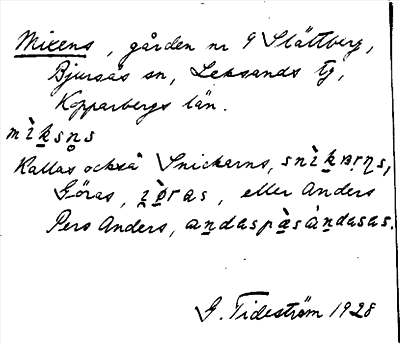 Mixens, gården nr 9 Slättberg,
Bjursås sn, Leksands tg,
Kopparbergs län.
mìksn̥s
Kallas också Snickarns, snìkarṇs,
Göras, ɪ̀øras, eller Anders
Pers Anders, andaspæ̀sàndasas.
G. Tideström 1928